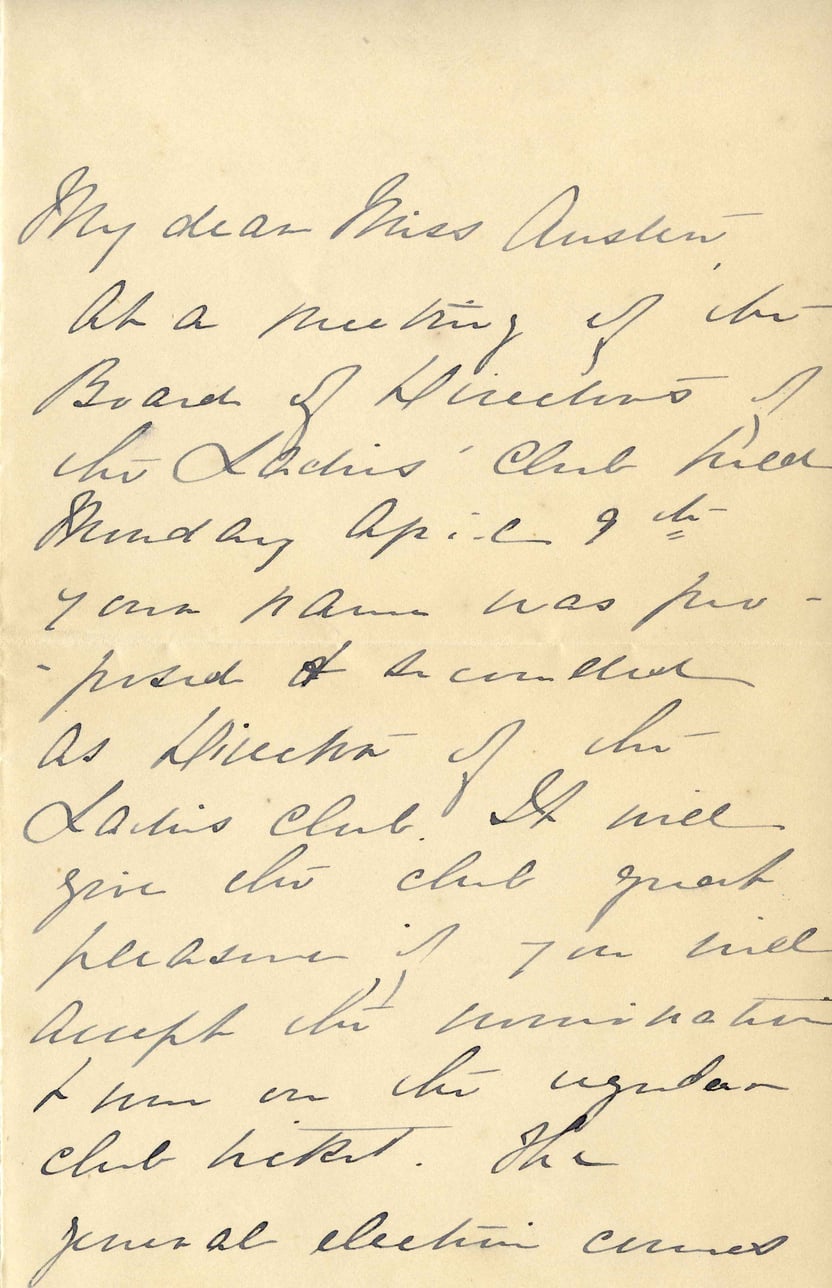 My dear Miss Austen,
At a meeting of the
Board of Directors of
the Ladies' Club held
Monday April 9th
your name was pro-
-posed & seconded
as Director of the
Ladies Club. It will
give the club great
pleasure if you will
accept the nomination
& run on the regular
club ticket. The
general election comes